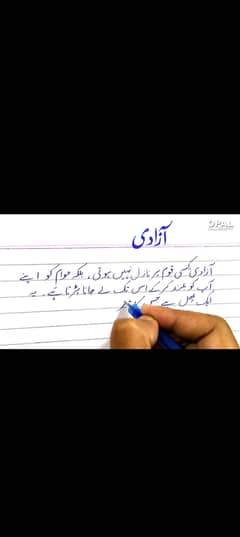 OPAL
آزادی
آزادی کسی قوم پر نازل نہیں ہوتی، بلکہ عوام کو اپنے
آپ کو بلند کرکے اس تک لے جانا پڑتا ہے۔ یہ
ایک پھل ہے جس کا